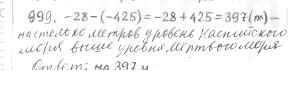 999. -28-(-425)=-28+425=397(m)-
настолько метров уровень Каспийского
моря выше уровня мертвого моря
Ответ: на 397 м